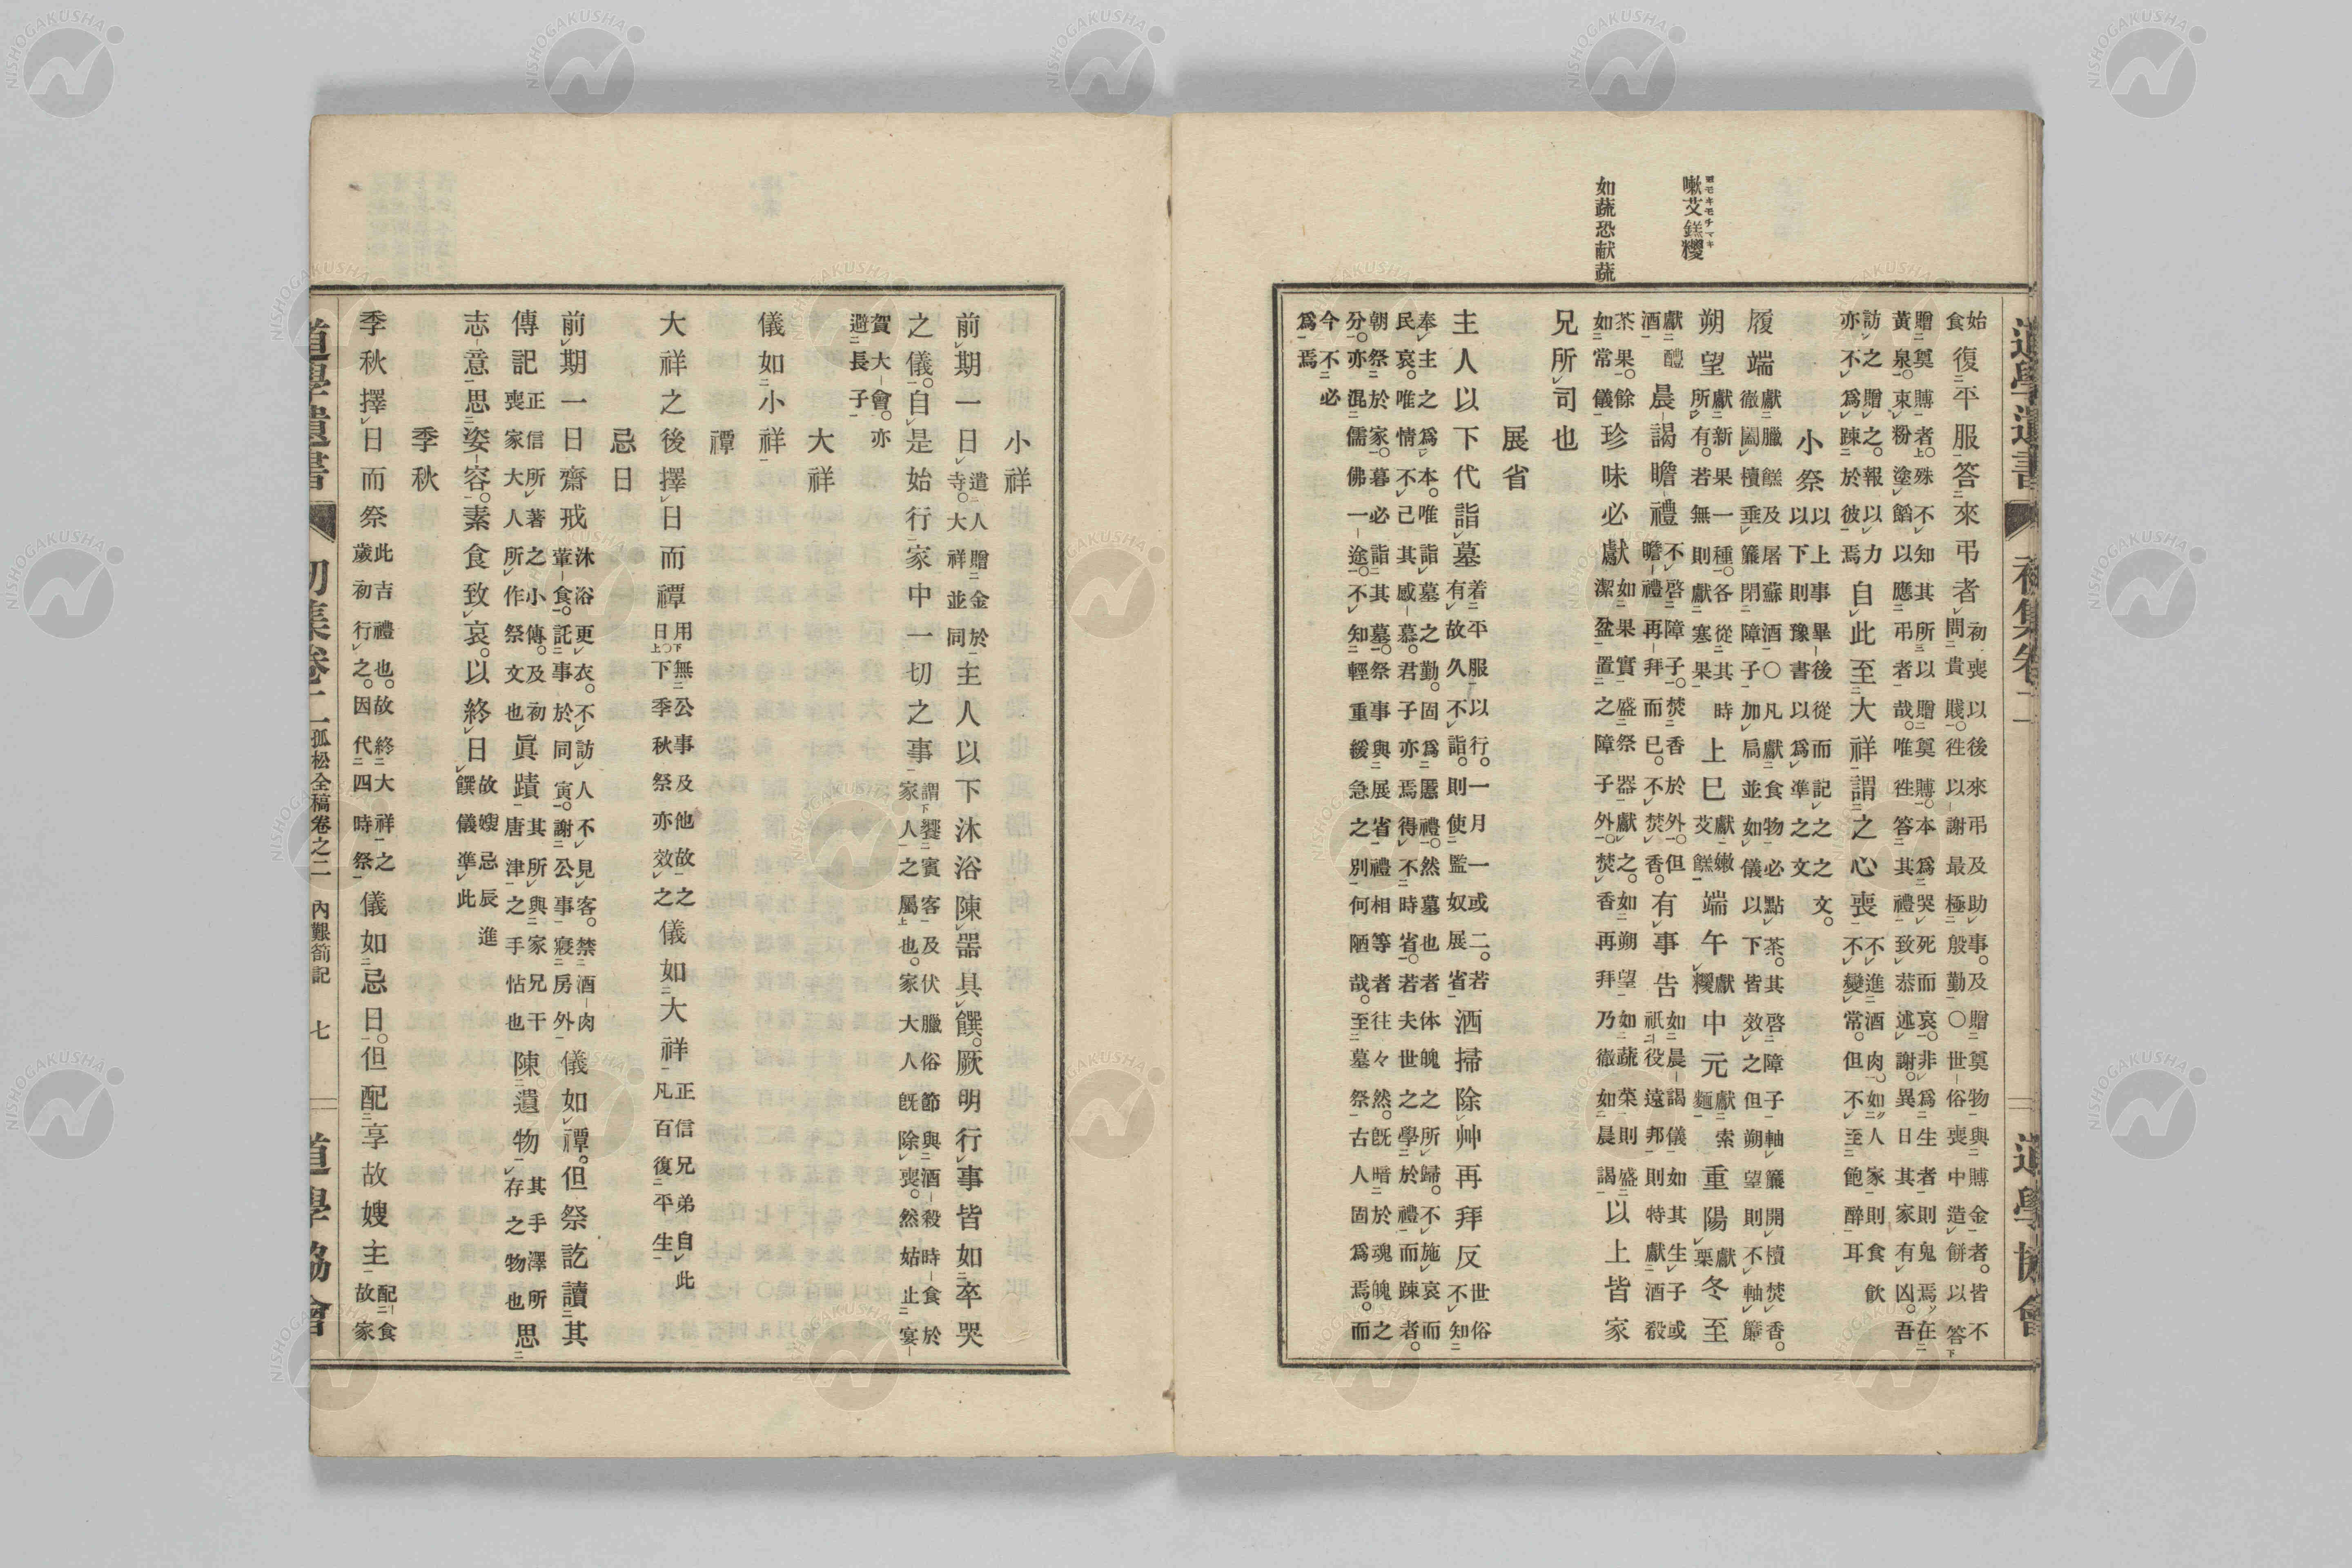 道學遺書 初集卷二 道學協會
嗽艾餻糭
如蔬恐献蔬
始食復平服答來弔者初喪以後來弔及助事。及贈奠物與賻金者。皆不問貴賤。徃以謝最極般勤〇世俗喪中造餅以答
贈奠賻者。殊不知其所以贈奠賻。本爲哭死而哀。非爲生者則鬼焉在黃泉。束粉塗餡以應弔者哉。唯徃答其禮致恭述謝。異日其家有凶。吾
訪之贈之。報以力亦不爲踈於彼焉自此至大祥謂之心喪不進酒肉。如人家則食飮不變常。但不至飽醉耳
小祭以上事畢後從而記之之文。以下則豫書以爲準之文
履端獻臘餻及屠蘇酒〇凡獻食物必點茶。其啓障子軸簾開櫝焚香。徹闔櫝垂簾閉障子加局並如儀以下皆效之但朔望則不軸簾
朔望獻新果一種。各從其時所有。若無則獻塞果上巳獻嫩艾餻端午獻糭中元獻索麵重陽獻栗冬至
獻醴酒晨謁瞻禮不啓障子。焚香於外。但瞻禮再拜而已。不焚香。有事告如晨謁儀如其生子或祇役遠邦則特獻酒殽
茶果。餘如常儀珍味必獻如果實盛祭器獻之。如朔望如蔬菜則盛潔盆置之障子外。焚香再拜乃徹如晨謁以上皆家
兄所司也
展省
主人以下代詣墓着平服以行。一月一或二。若有故久不詣。則使監奴展省洒掃除艸再拜反世俗不知
奉主之爲本。唯詣墓之勤。固爲慝禮。然墓也者体魄之所歸。不施哀而民哀。唯情不己其感慕。君子亦焉得不時省。若夫世之學於禮而踈者。
朝祭於家。暮必詣其墓。祭事與展省禮相等者往々然。旣暗於魂魄之分。亦混儒佛一途。不知輕重緩急之別何陋哉。至墓祭古人固爲焉。而
今不必爲焉
小祥
前期一日遣人贈金於寺。大祥並同主人以下沐浴陳噐具饌。厥明行事皆如卒哭
之儀。自是始行家中一切之事謂饗賓客及伏臘俗節與酒殽時食於家人之屬也。家大人旣除喪。然姑止宴
賀大會。亦避長子
大祥
儀如小祥
禫
大祥之後擇日而禫用無公事及他故之日〇下季秋祭亦效之儀如大祥正信兄弟自此凡百復平生
忌日
前期一日齋戒沐浴更衣。不訪人不見客。禁酒肉葷食。託事於同寅。謝公事寢房外儀如禫。但祭訖讀其
傳記正信所著之小傳。及初喪家大人所作祭文也眞蹟其所與家兄干唐津之手帖也陳遺物其手澤所存之物也思
志意思姿容。素食致哀。以終日故嫂忌辰進饌儀準此
季秋
季秋擇日而祭此吉禮也。故終大祥之歲初行之。因代四時祭儀如忌日。但配享故嫂主配食故家
道學遺書 初集卷二 孤松全稿卷之二 內艱箚記 七 道學協會